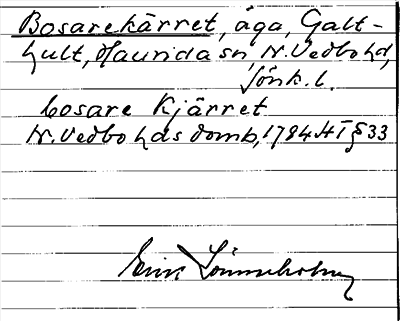 Bosarekärret, äga, Galt-
hult, Haurida sn N. Vedbo hd,
Jönk. l.
bosare Kjärret
N. Vedbo hds domb, 1784 HT § 33
Erik Lönnerholm